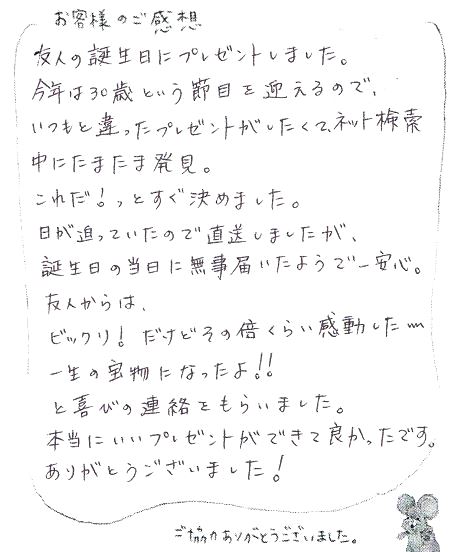 お客様のご感想
友人の誕生日にプレゼントしました。
今年は30歳という節目を迎えるので、
いつもと違ったプレゼントがしたくて、ネット検索
中にたまたま発見。
これだ!っとすぐ決めました。
日が迫っていたので直送しましたが、
誕生日の当日に無事届いたようで一安心。
友人からは、
ビックリ!だけどその倍くらい感動した〰
一生の宝物になったよ!!
と喜びの連絡をもらいました。
本当にいいプレゼントができて良かったです。
ありがとうございました!
ご協力ありがとうございました。